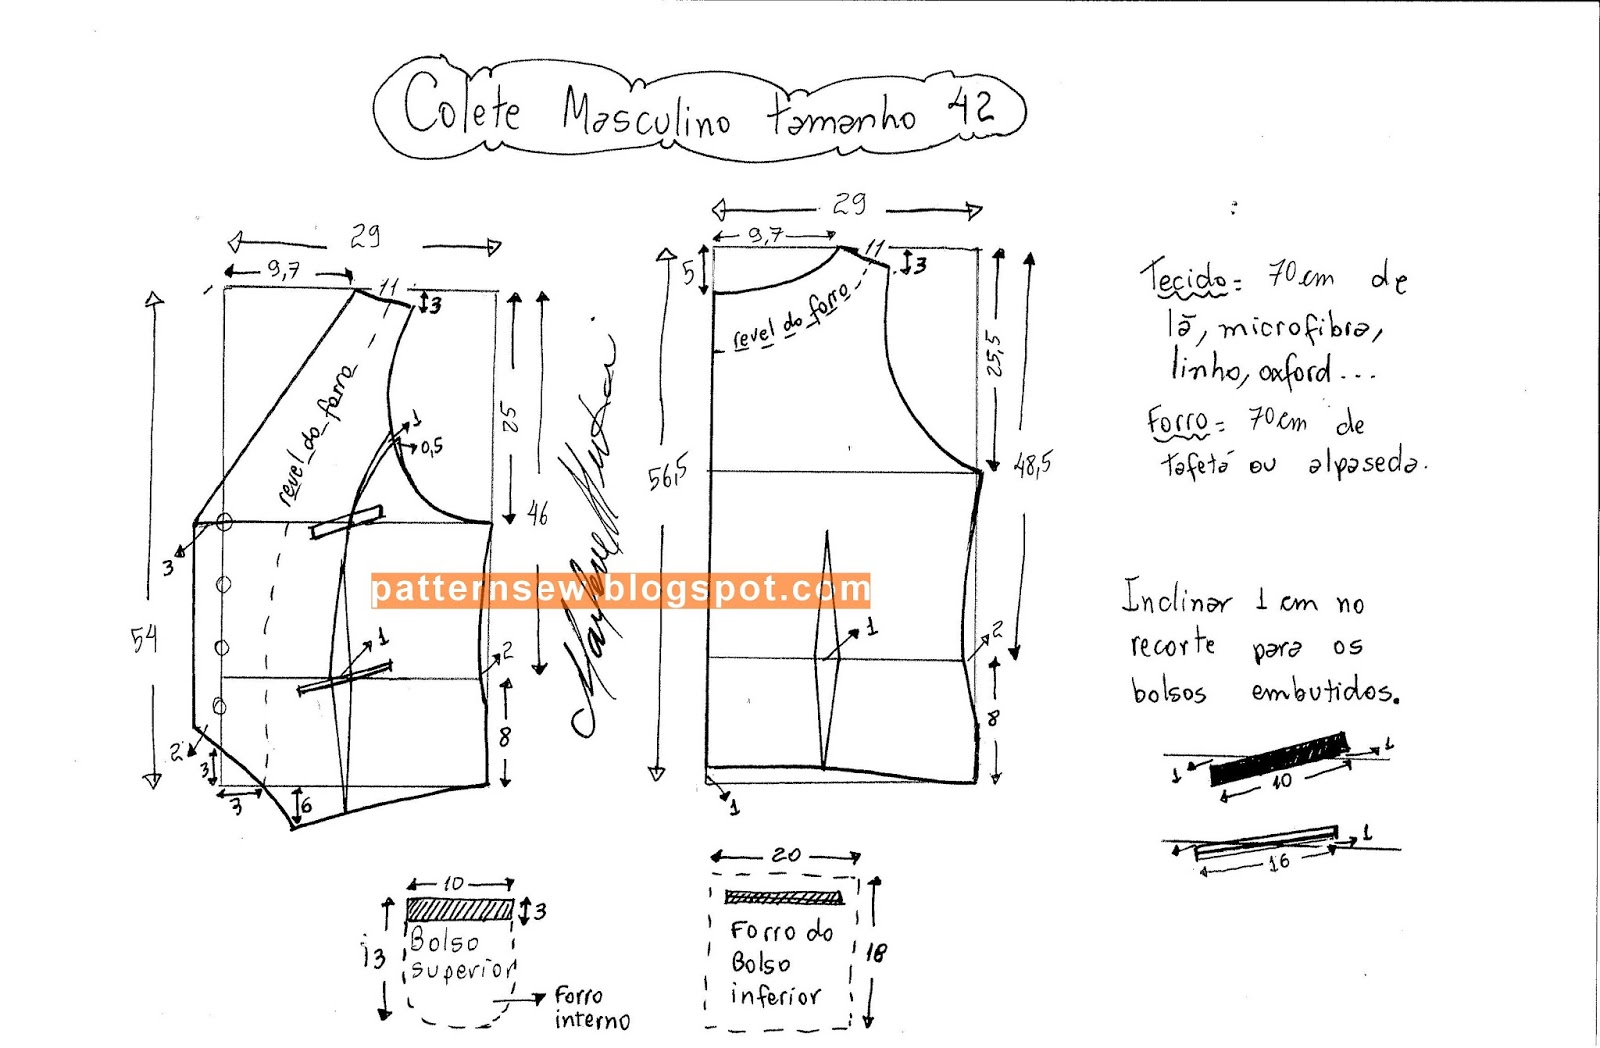 Colete Masculino tamanho 42
29
9,7
11
3
revel do forro
25
46
1
0,5
3
54
1
2
8
2
3
3
6
29
9,7
11
5
3
revel do forro
25,5
48,5
56,5
1
2
8
1
patternsew.blogspot.com
Tecido = 70cm de
lã, microfibra,
linho, oxford...
Forro = 70cm de
tafetá ou alpaseda.
Inclinar 1 cm no
recorte para os
bolsos embutidos.
1
1
10
1
16
10
3
13
Bolso
superior
Forro
interno
20
18
Forro do
Bolso
inferior